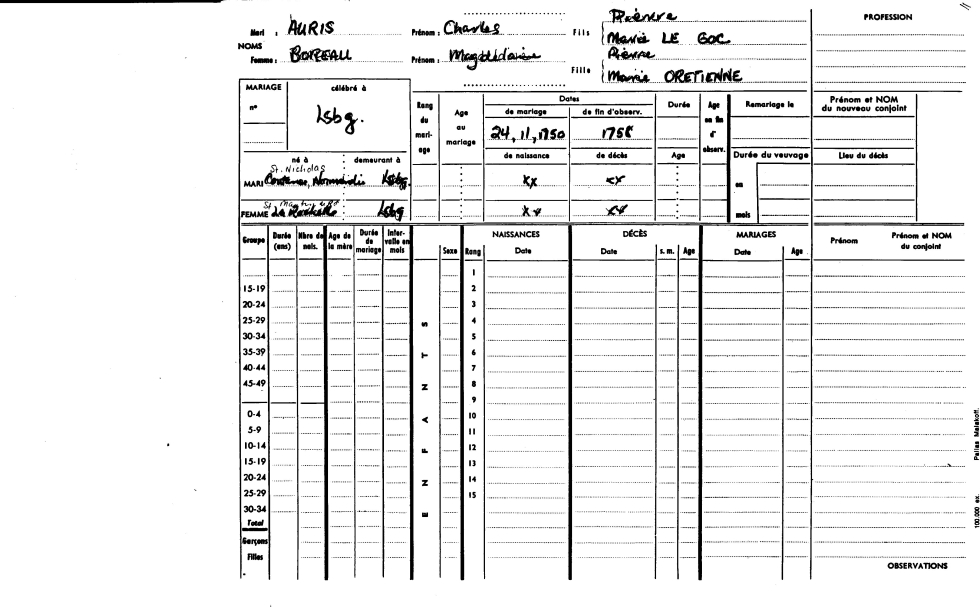 PROFESSION
Mari : AURIS Prénom : Charles Fils Pierre
Marie LE GOC
NOMS
Femme : BOREAU Prénom : Magdelaine Fille Pierre
Marie ORETIENNE
MARIAGE célébré à
n° Lsbg.
Rang du mariage
Age au mariage
Dates
de mariage de fin d'observ.
24, 11, 1750 1758
de naissance de décès
Durée
Age
Age en fin d' observ.
Remariage le
Durée du veuvage
en
mois
Prénom et NOM du nouveau conjoint
Lieu du décès
né à demeurant à
St. Nicholas
MARI Normandie Lsbg. xx xx
FEMME La Rochelle Lsbg xx xx
Groupe Durée (ans) Nbre de nais. Age de la mère Durée de mariage Intervalle en mois
ENFANTS
Sexe Rang
NAISSANCES Date
DÉCÈS Date s. m. Age
MARIAGES Date Age
Prénom Prénom et NOM du conjoint
1
15-19 2
20-24 3
25-29 4
30-34 5
35-39 6
40-44 7
45-49 8
9
0-4 10
5-9 11
10-14 12
15-19 13
20-24 14
25-29 15
30-34
Total
Garçons
Filles
OBSERVATIONS
100.000 ex. Pallas Malakoff.